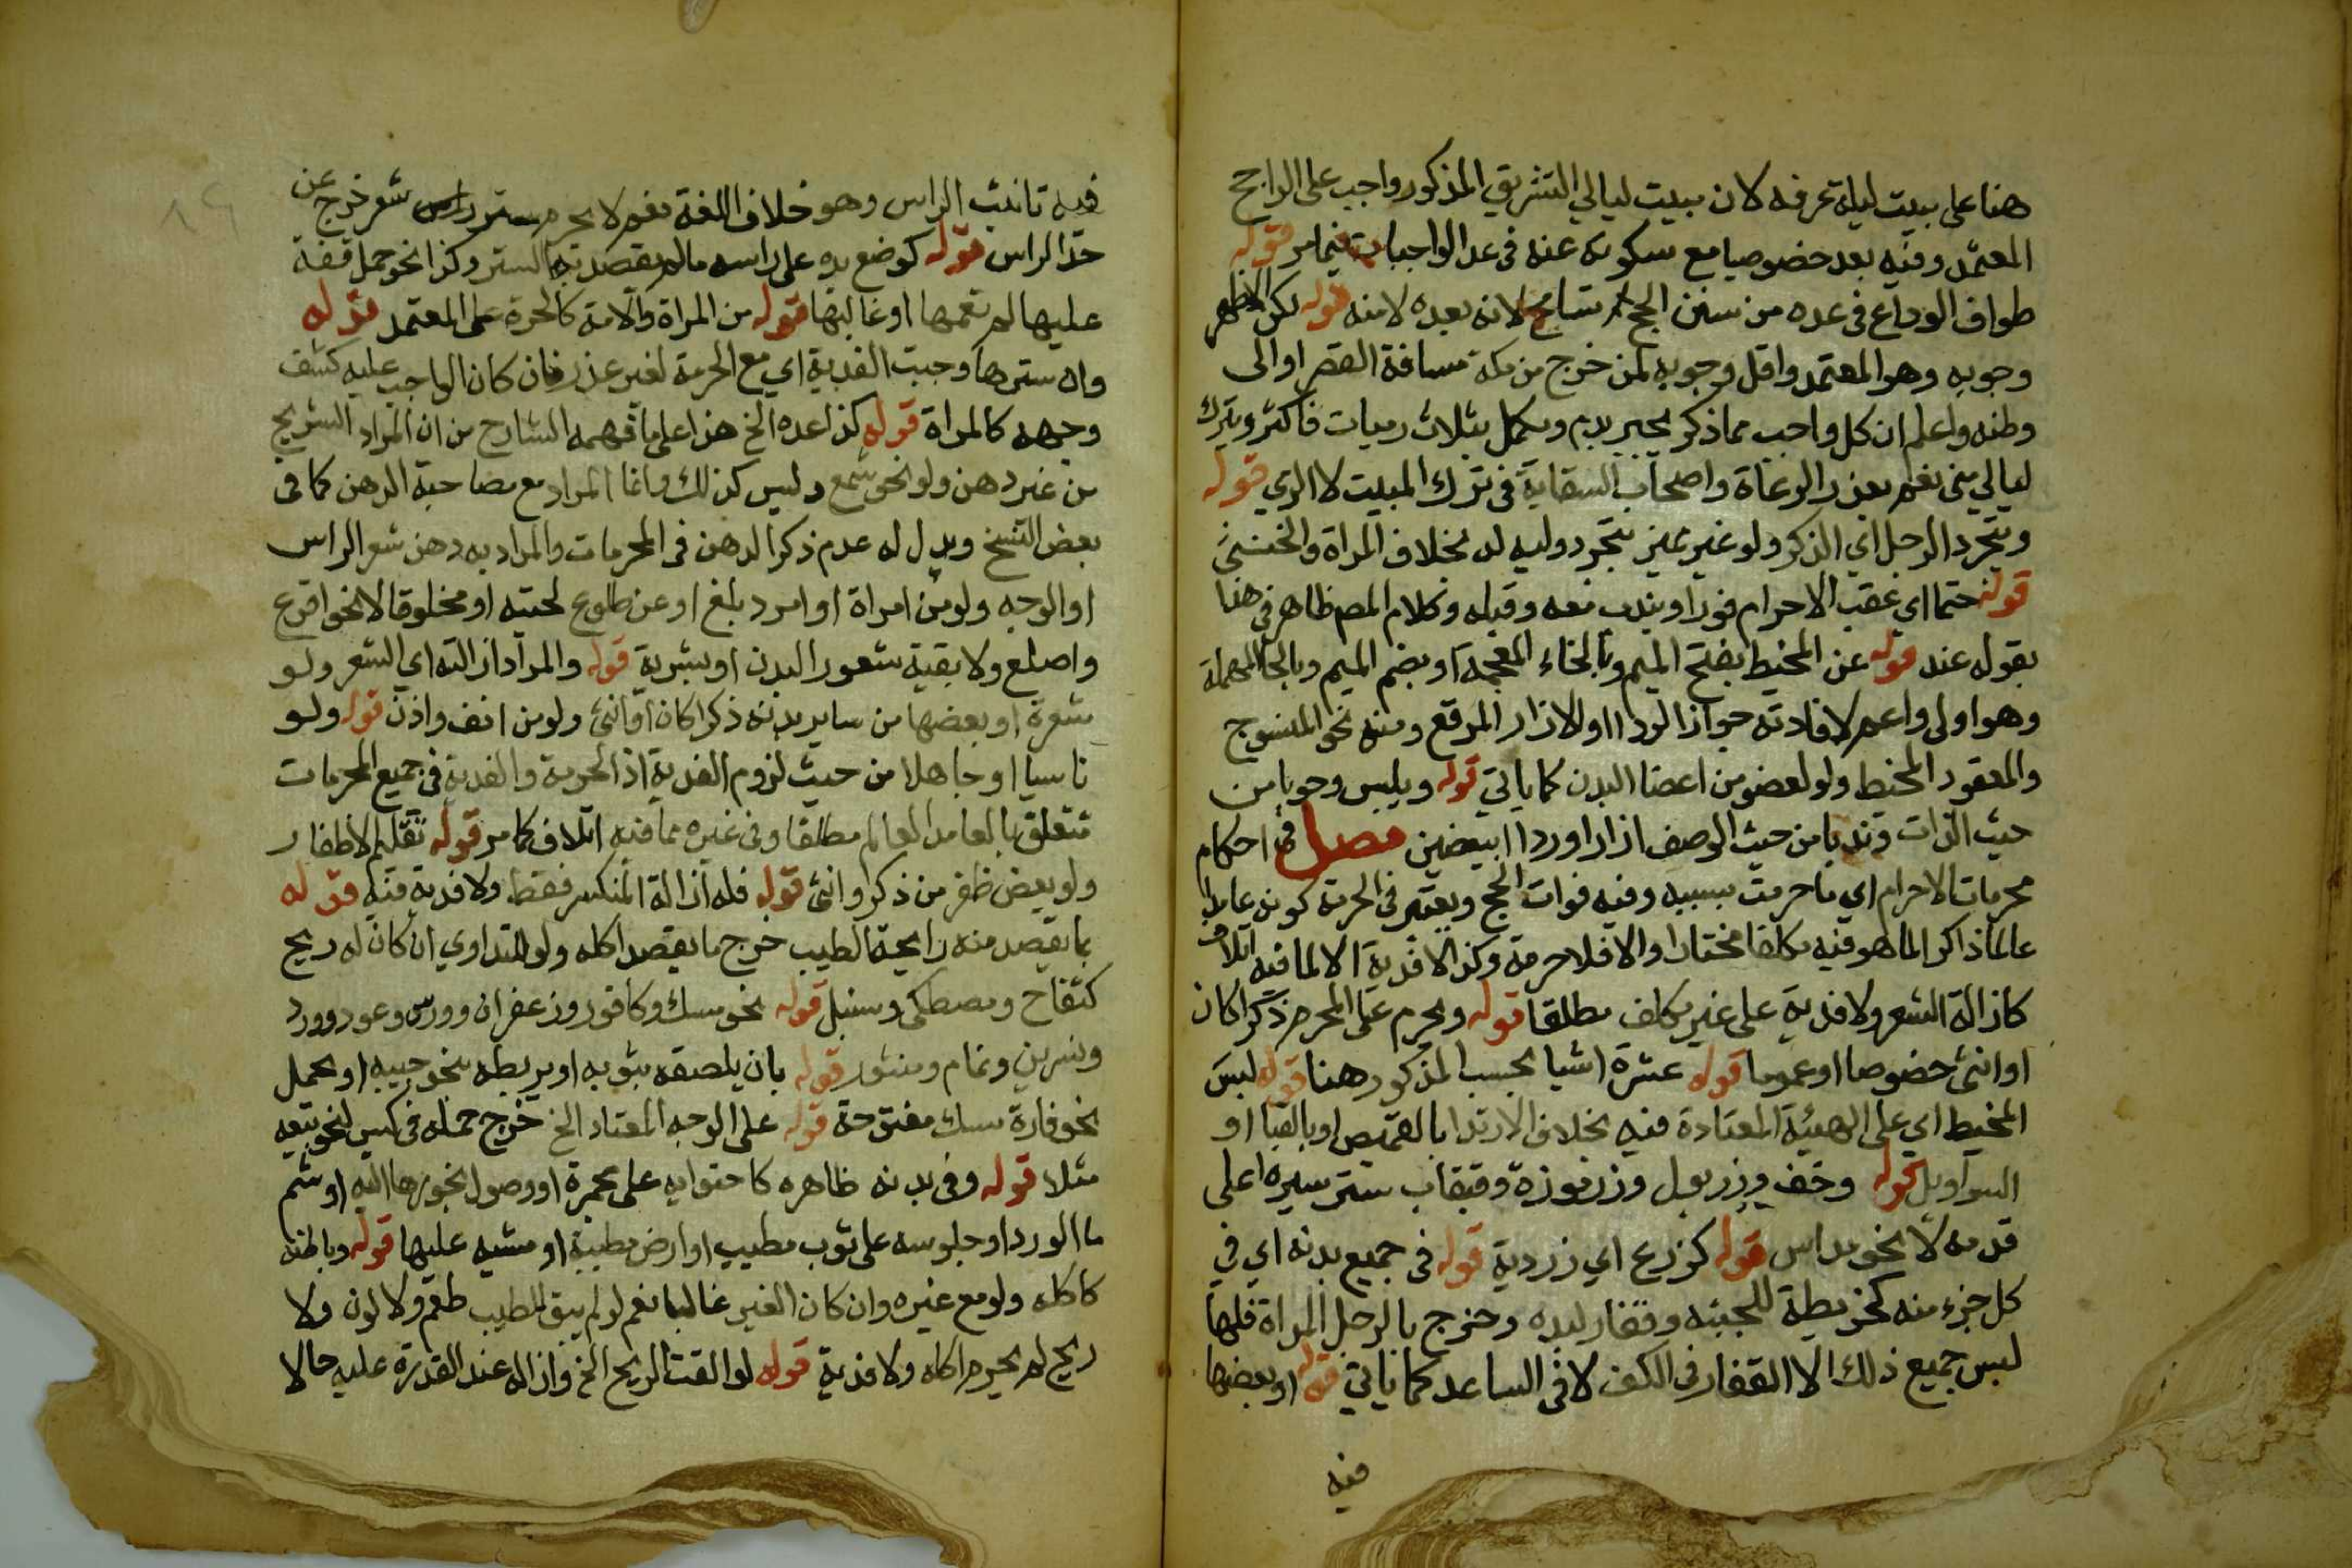 هنا على مبيت ليلة عرفه لان مبيت ليالي التشريق المذكور واجب على الراجح
المعتمد وفيه بعد خصوصيا مع سكوته عنه في عد الواجبات فيما مر قوله
طواف الوداع في عده من سنن الحج تسامح لانه بعده لا منه قوله لكن الاظهر
وجوبه وهو المعتمد واقل وجوبه لمن خرج من مكة مسافة القصر او الى
وطنه واعلم ان كل واجب مما ذكر يجبر بدم ويكمل بثلاث رميات فاكثر وبترك
ليالي منى نعم يعذر الرعاة واصحاب السقاية في ترك المبيت لا الرمي قوله
ويتجرد الرجل اي الذكر ولو غير مميز بتجرد وليه له بخلاف المراة والخنثى
قوله حتما اي عقب الاحرام فورا ويندب معه وقبله وكلام المصم ظاهر في هذا
بقوله عند قوله عن المخيط بفتح الميم وبالخاء المعجمة او بضم الميم وبالحا المهملة
وهو اولى واعم لافادته جواز الردا او الازار المرقع ومنه نحو المنسوج
والمعقود المخيط ولو لعضو من اعضا البدن كما ياتي قوله ويلبس وجوبا من
حيث الذات وندبا من حيث الوصف ازارا وردا ابيضين فصل في احكام
محرمات الاحرام اي ما حرمت بسببه وفيه فوات الحج ويعتبر في الحرمة كونه عامدا
عالما ذاكرا لما هو فيه مكلفا مختارا والا فلا حرمة وكذا لا فدية الا لما فيه اتلاف
كازالة الشعر ولا فدية على غير مكلف مطلقا قوله ويحرم على المحرم ذكرا كان
او انثى خصوصا او عموما قوله عشرة اشيا بحسب المذكور هنا قوله لبس
المخيط اي على الهيئة المعتادة فيه بخلاف الارتدا بالقميص او بالقبا او
السراويل قوله وخف وزربول وزرموزة وقبقاب ستر سيره اعلى
قدمه لا نحو مداس قوله كزرع اي زردية قوله في جميع بدنه اي في
كل جزء منه كخريطة للحيته وقفاز ليده وخرج بالرجل المراة فلها
لبس جميع ذلك الا القفاز في الكف لا في الساعد كما ياتي قوله او بعضها
فيه
فيه تانيث الراس وهو خلاف اللغة نعم لا يحرم ستر شعر خرج عن
حد الراس قوله كوضع يده على راسه ما لم يقصد به الستر وكذا نحو حمل قفة
عليها لم تعمها او غالبها قوله من المراة والامة كالحرة على المعتمد قوله
وان سترها وجبت الفدية اي مع الحرمة لغير عذر فان كان الواجب عليه كشف
وجهه كالمراة قوله كذا عده الخ هذا على ما فهمه الشارح من ان المراد التسريح
من غير دهن ولو نحو شمع وليس كذلك وانما المراد مع مصاحبة الدهن كما في
بعض النسخ ويدل له عدم ذكر الدهن في المحرمات والمراد به دهن شعر الراس
او الوجه ولو من امراة او امرد بلغ او عن طلوع لحيته او محلوقا لا نحو اقرع
واصلع ولا بقية شعور البدن او بشرية قوله والمراد ازالته اي الشعر ولو
شعرة او بعضها من ساير بدنه ذكرا كان او انثى ولو من انف واذن قوله ولو
ناسيا او جاهلا من حيث لزوم الفدية اذ الحرمة والفدية في جميع المحرمات
تتعلق بالعامد العالم مطلقا وفي غيره مما فيه اتلاف كما مر قوله تقليم الاظفار
ولو بعض ظفر من ذكر وانثى قوله فله ازالة المنكسر فقط ولا فدية فيه قوله
بما يقصد منه رايحة الطيب خرج ما يقصد اكله ولو للتداوي ان كان له ريح
كتفاح ومصطكى وسنبل قوله نحو مسك وكافور وزعفران وورس وعود وورد
ونسرين ونمام ومنثور قوله بان يلصقه بثوبه او يربطه بنحو جيبه او يحمل
نحو فارة مسك مفتوحة قوله على الوجه المعتاد الخ خرج حمله في كيس لنحو بيعه
مثلا قوله وفي بدنه ظاهره كاحتوايه على مجمرة او وصول بخورها اليه او شم
ما الورد او جلوسه على ثوب مطيب او ارض مطيبة او مشيه عليها قوله وباطنه
كاكله ولو مع غيره وان كان الغير غالبا نعم لو لم يبق للطيب طعم ولا لون ولا
ريح لم يحرم اكله ولا فدية قوله لو القت الريح الخ وازاله عند القدرة عليه حالا